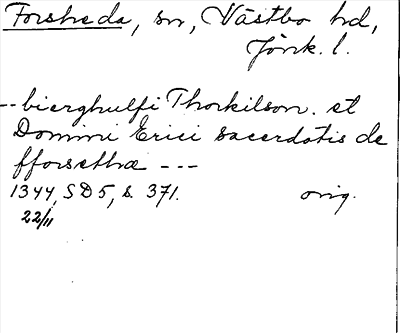 Forsheda, sn, Västbo hd,
Jönk. l.
-- bierghulfi Thorkilson. et
Domini Erici sacerdotis de
fforsethæ ---
1344, SD5, s. 371. orig.
22/11